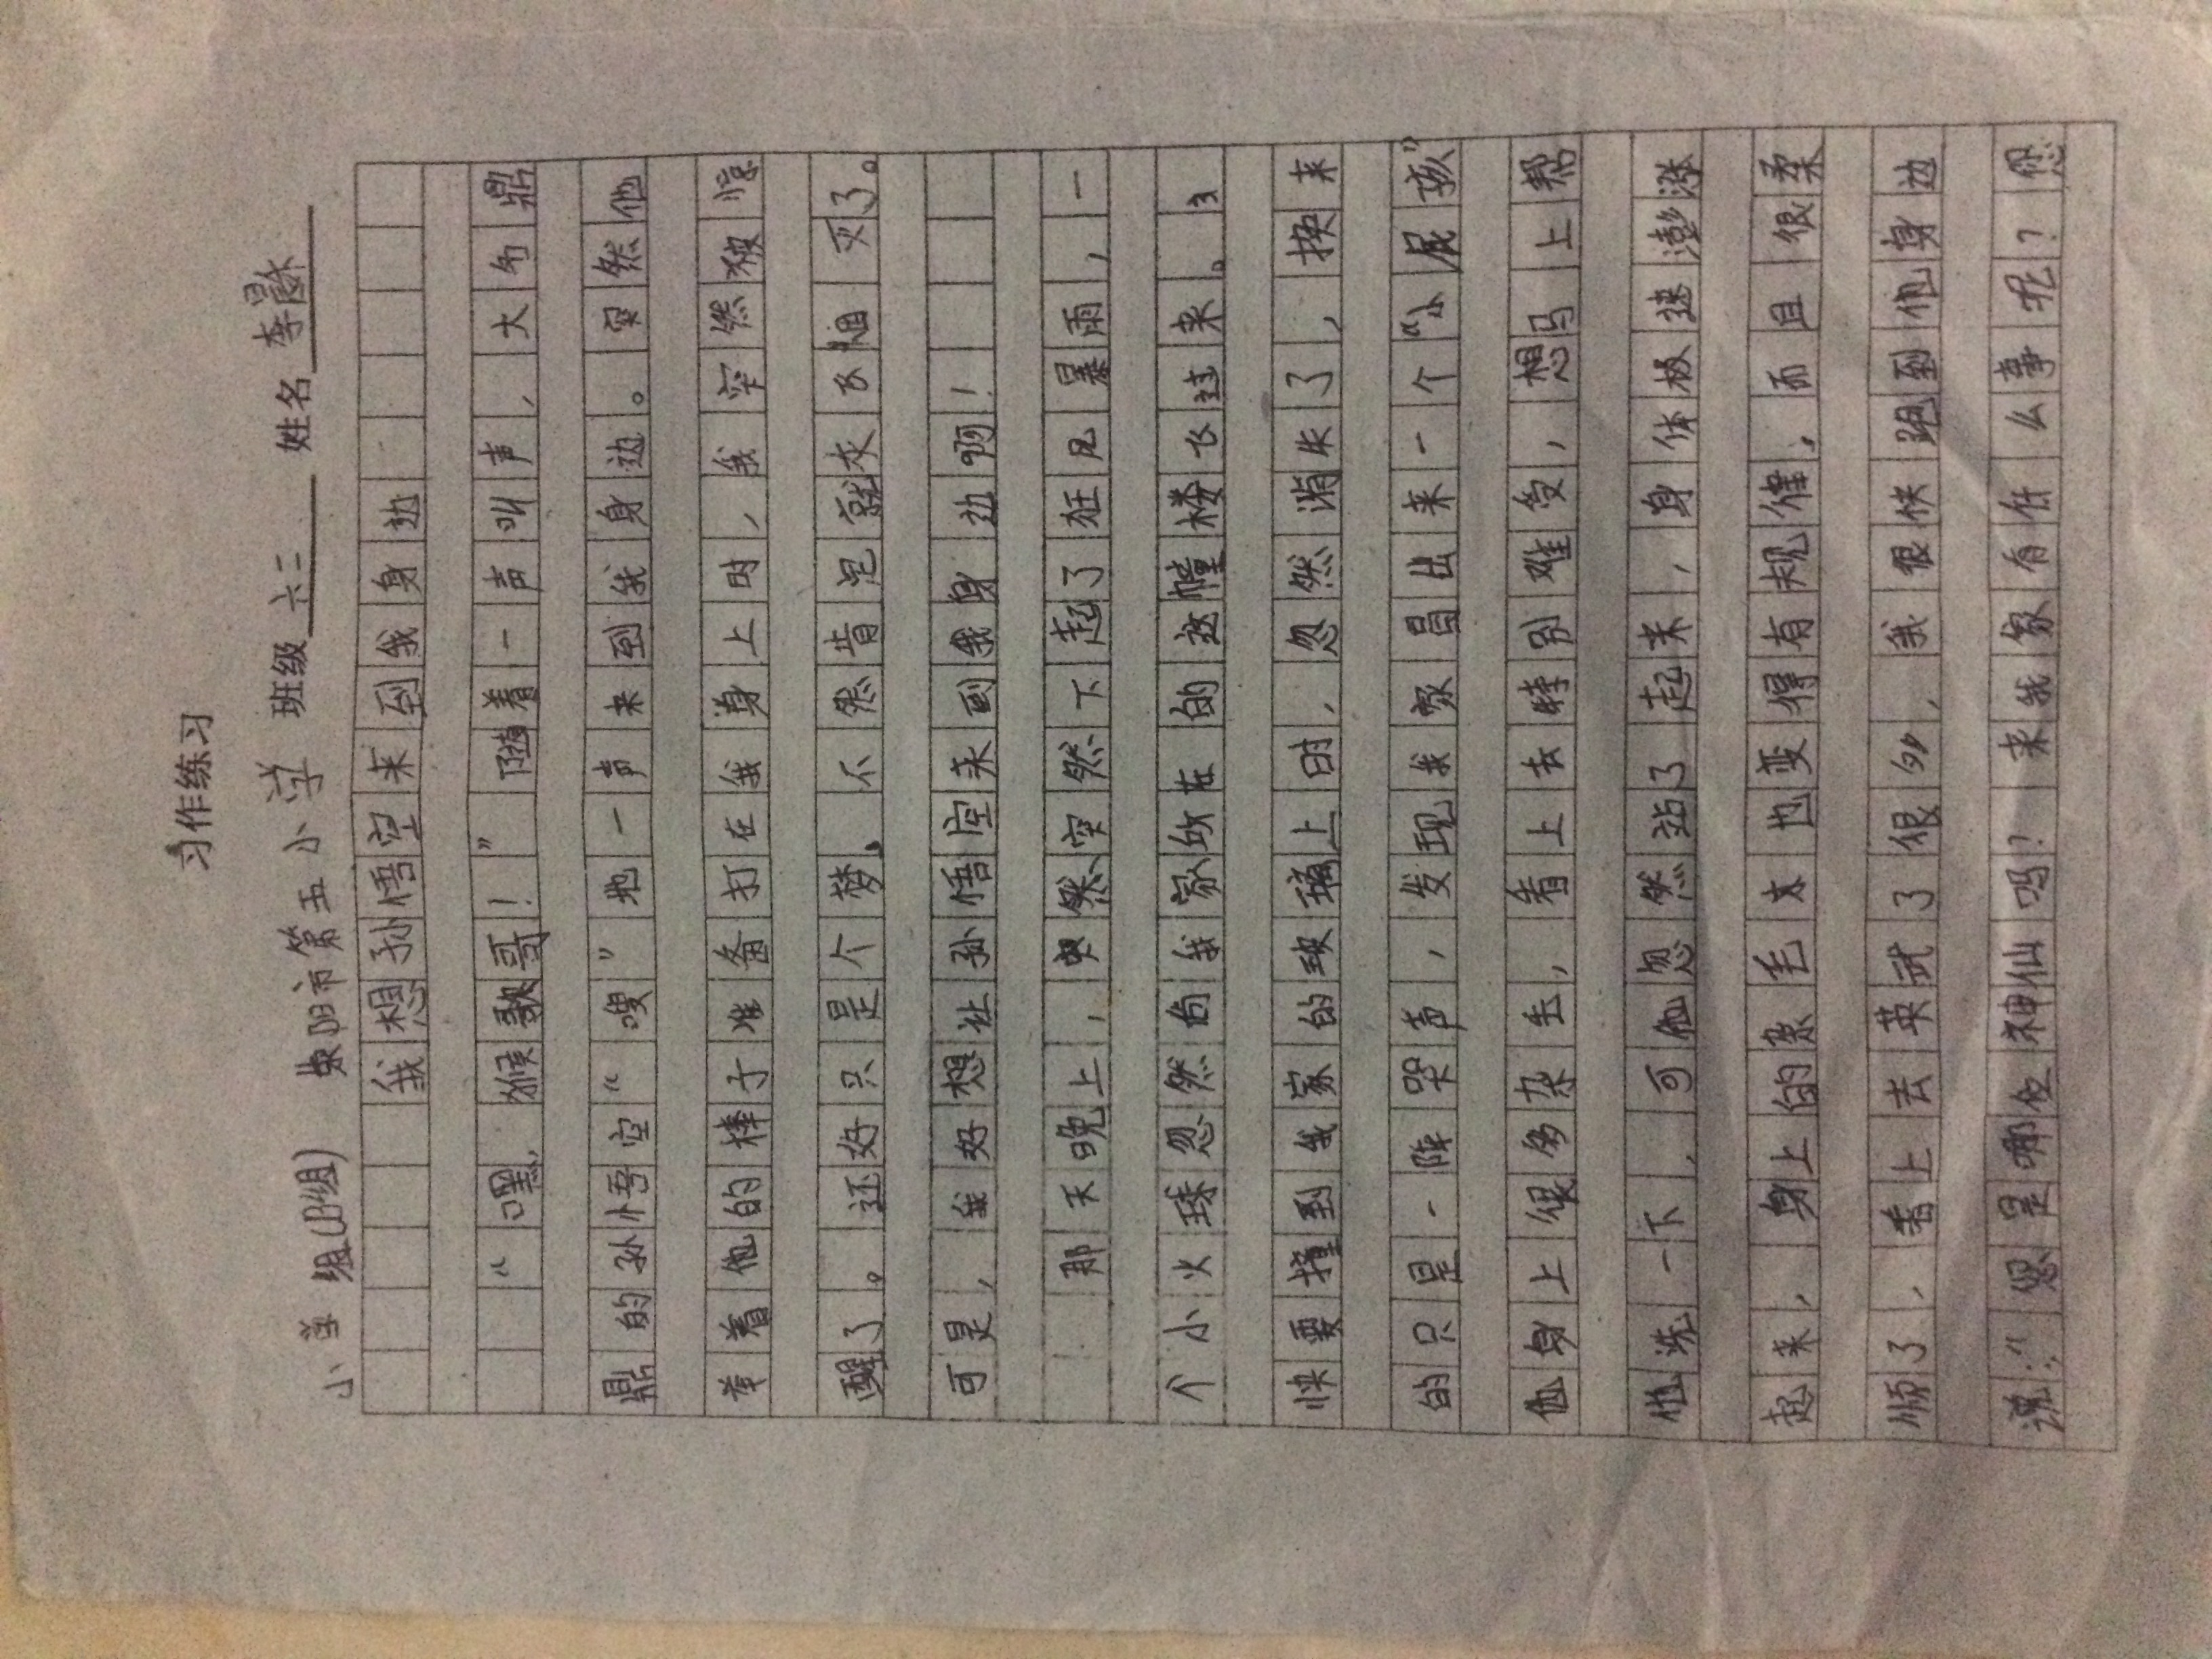 习作练习
小学组(B组) 阳市第五小学 班级 六二 姓名 李
我想孙悟空来到我身边
“嘿，猴歌哥！”随着一声叫声，大名鼎
鼎的孙悟空“嗖”地一声来到我身边。突然他
举着他的棒子准备打在我身上时，我突然被惊
醒了。还好只是个梦，不然昔足就灰飞烟灭了。
可是，我好想让孙悟空来到我身边啊！
那天晚上，突然突然下起了狂风暴雨，一
个小火球忽然向我家所在的这幢楼飞过来。当
快要撞到我家的玻璃上时，忽然消失了，换来
的只是一阵哭声，发现我家冒出来一个“小屁孩”
他身上很多杂毛，看上去特别难受，想马上帮
他洗一下，可他忽然站了起来，身体极速澎涨
起来，身上的杂毛木也变得有规律，而且很柔
顺了，看上去英武了很多，我很快跑到他身边
说：“您是哪位神仙吗？来我家有什么事呢？您